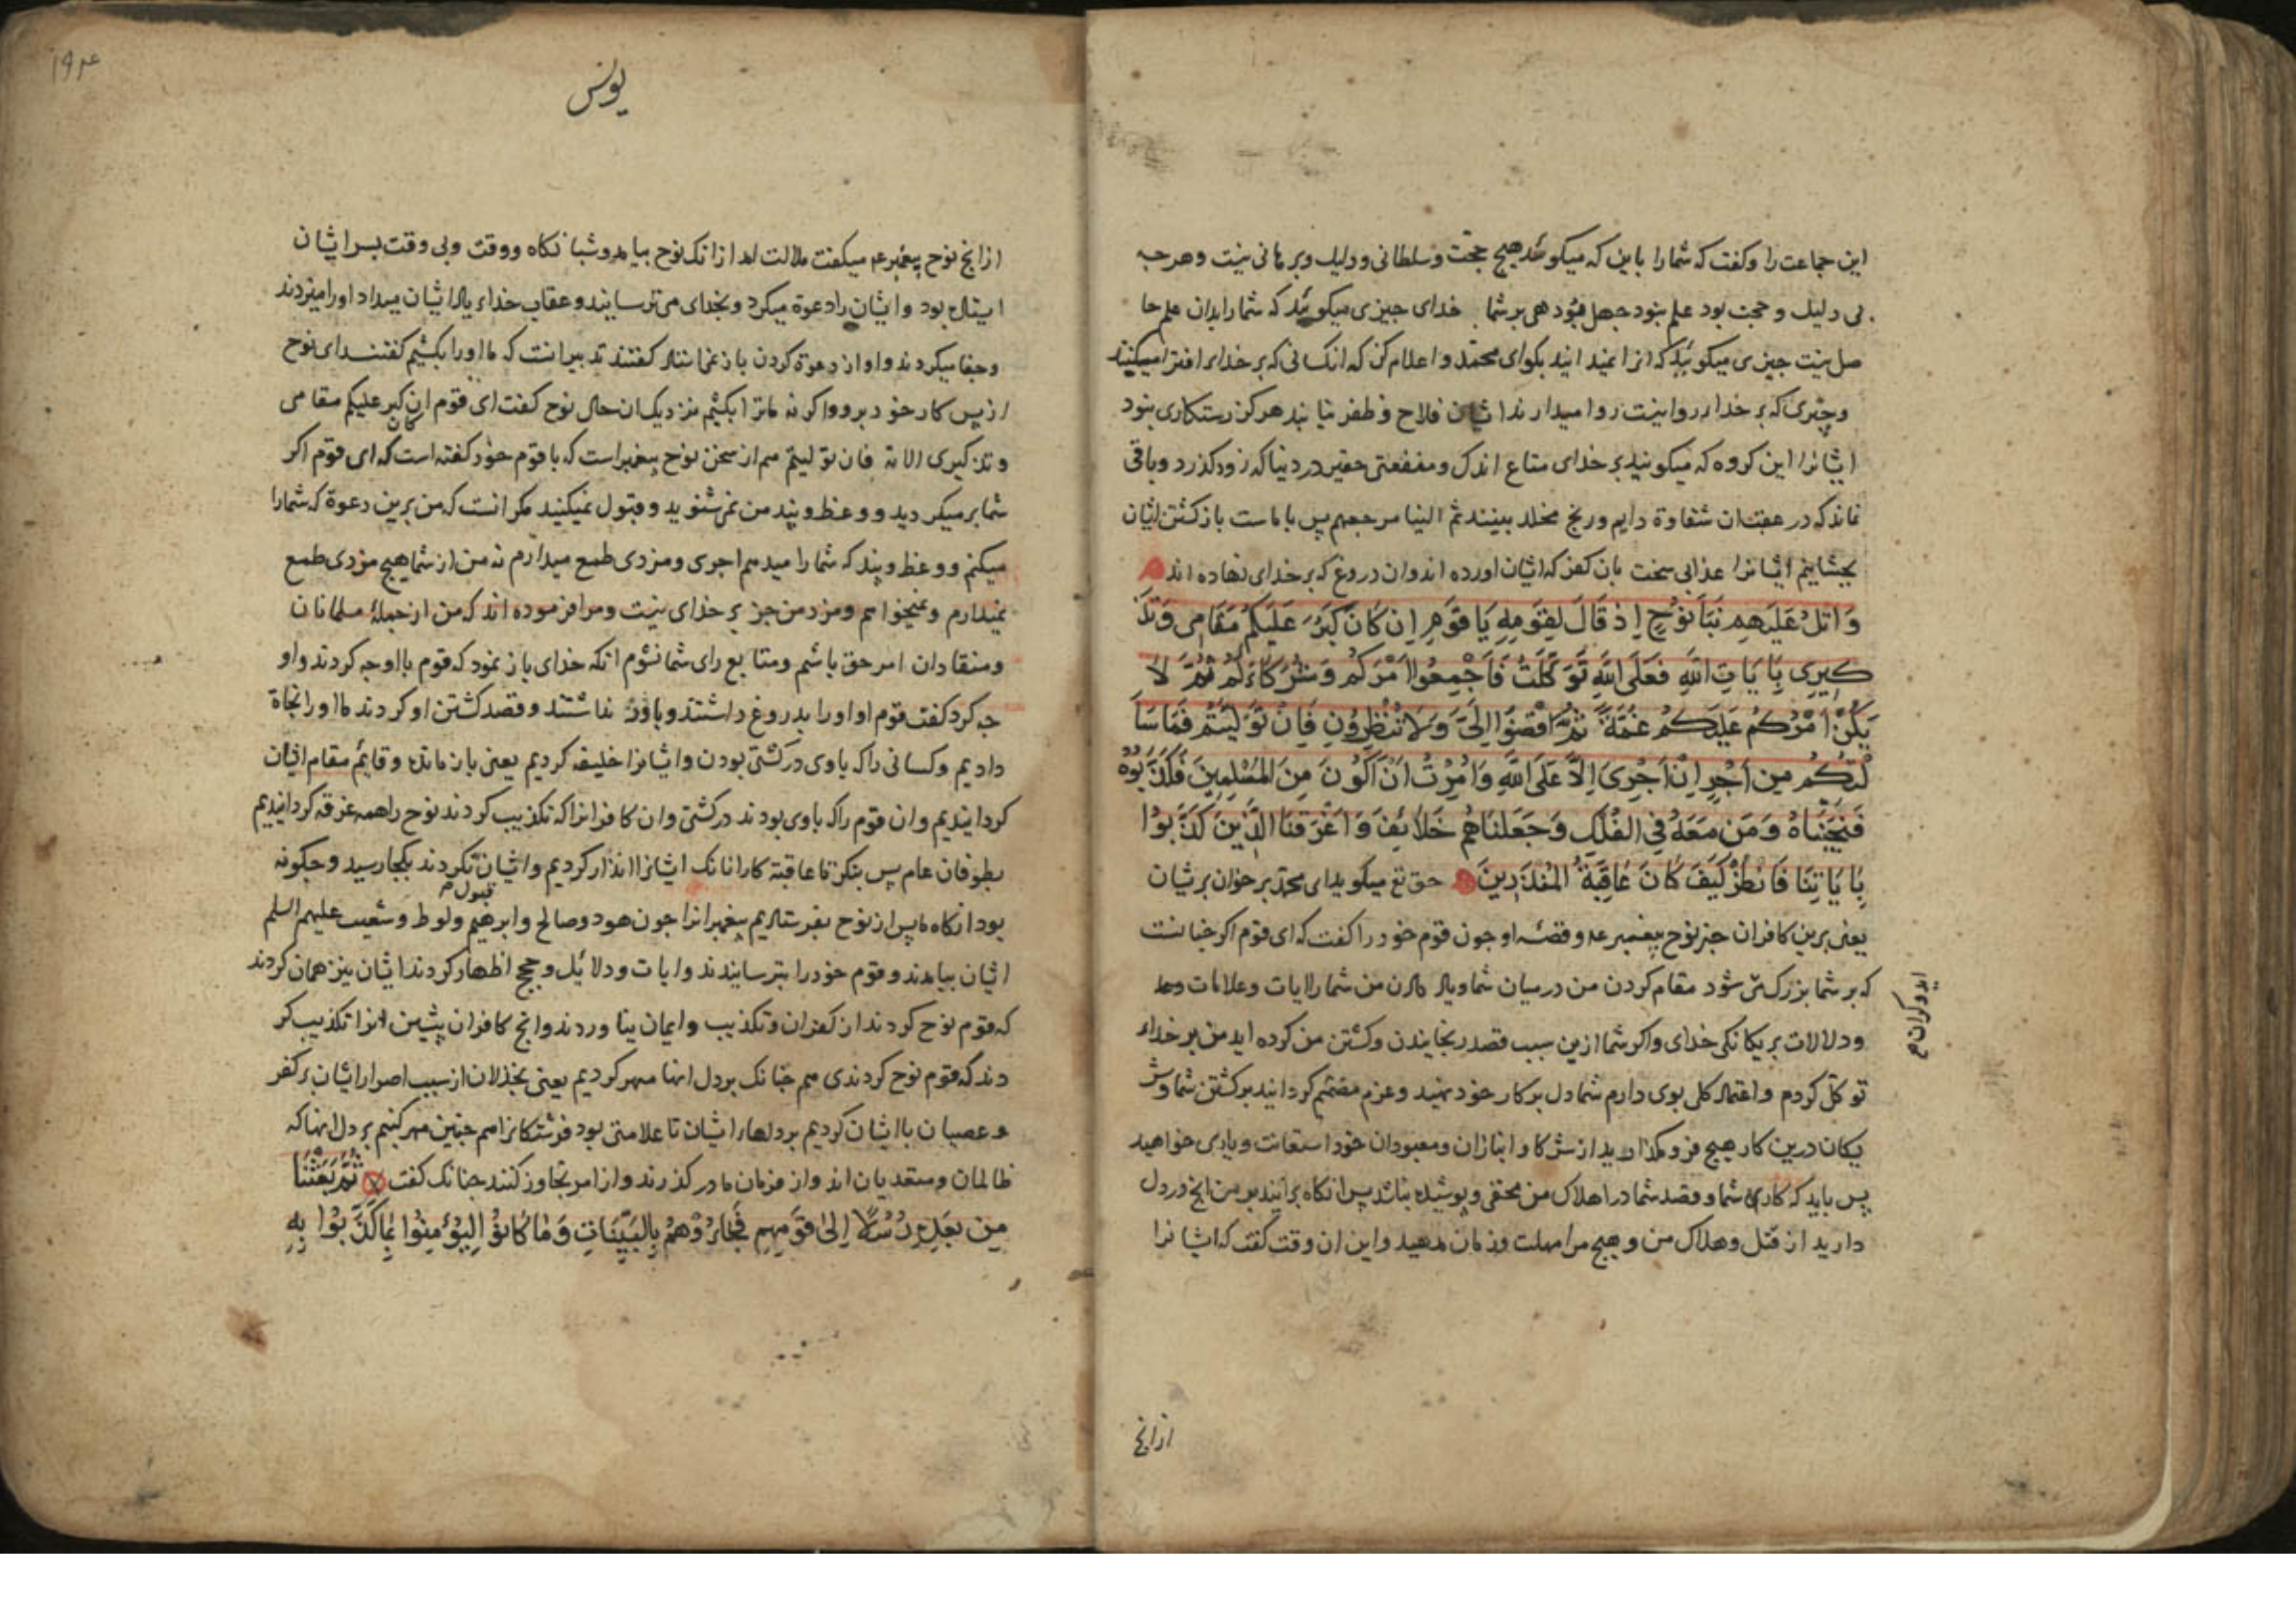 این جماعت را و کفت که شمارا باین که میکوئید هیچ حجت و سلطانی و دلیل و برهانی نیست و هرچه
بی دلیل و حجت بود علم نبود جهل بود هی بر شما خدای چیزی میکوئید که شما را بدان علم حا
صل نیست چیزی میکوئید که انرا نمیدانید بکو ای محمد و اعلام کن که انکسانی که بر خدای افترا میکنند
و چیزی که بر خدای روا نیست روا میدارند ایشان فلاح و ظفر نیابند هرکز رستکاری نبود
ایشانرا این کروه که میکوئید بر خدای متاع اندک و منفعتی حقیر در دنیا که زود کذرد و باقی
نماند که در عقبش ان شقاوة دایم و رنج مخلد بینند ثم الینا مرجعهم پس با ماست بازکشتن ایشان
بچشانیم ایشانرا عذابی سخت بان کفر که ایشان اورده اند و ان دروغ که بر خدای نهاده اند
وَاتْلُ عَلَيْهِمْ نَبَأَ نُوحٍ إِذْ قَالَ لِقَوْمِهِ يَا قَوْمِ إِن كَانَ كَبُرَ عَلَيْكُمْ مَقَامِي وَتَذْ
كِيرِي بِآيَاتِ اللَّهِ فَعَلَى اللَّهِ تَوَكَّلْتُ فَأَجْمِعُوا أَمْرَكُمْ وَشُرَكَاءَكُمْ ثُمَّ لَا
يَكُنْ أَمْرُكُمْ عَلَيْكُمْ غُمَّةً ثُمَّ اقْضُوا إِلَيَّ وَلَا تُنْظِرُونِ فَإِنْ تَوَلَّيْتُمْ فَمَا سَأَ
لْتُكُمْ مِنْ أَجْرٍ إِنْ أَجْرِيَ إِلَّا عَلَى اللَّهِ وَأُمِرْتُ أَنْ أَكُونَ مِنَ الْمُسْلِمِينَ فَكَذَّبُوهُ
فَنَجَّيْنَاهُ وَمَنْ مَعَهُ فِي الْفُلْكِ وَجَعَلْنَاهُمْ خَلَائِفَ وَأَغْرَقْنَا الَّذِينَ كَذَّبُوا
بِآيَاتِنَا فَانْظُرْ كَيْفَ كَانَ عَاقِبَةُ الْمُنْذَرِينَ حق تع میکوید ای محمد بر خوان بریشان
یعنی برین کافران خبر نوح پیغمبر عه و قصه او چون قوم خود را کفت که ای قوم اکر چنانست
که بر شما بزرک می شود مقام کردن من در میان شما و یاد دادن من شما را ایات و علامات
و دلالات بر یکانکی خدای و اکر شما ازین سبب قصد رنجانیدن و کشتن من کرده اید من بر خدای
توکل کردم و اعتماد کلی بوی دارم شما دل بر کار خود نهید و عزم مصمم کردانید بر کشتن شما و
یکان درین کار هیچ فرو مکذارید از شرکا و انبازان و معبودان خود استعانت و یاری خواهید
پس باید که کار شما و قصد شما در اهلاک من مخفی و پوشیده نباشد پس انکاه برانید بر من انچ در دل
دارید از قتل و هلاک من و هیچ مرا مهلت و زمان مدهید و این ان وقت کفت که ایشانرا
ازانچ
یونس
۱۹۴
ازانچ نوح پیغمبر عه میکفت ملالت امد ازانک نوح بیامد و شبانکاه و وقت و بی وقت بسر ایشان
ایستاده بود و ایشان را دعوة میکرد و بخدای می ترسانید و عقاب خدای یاد ایشان میداد او را میزدند
و جفا میکردند و او از دعوة کردن باز نمی استاد کفتند تدبیر انست که ما او را بکشیم کفتند ای نوح
از پس کار خود برو و اکر نه ما ترا بکشیم نزدیک ان حال نوح کفت ای قوم ان کان کبر علیکم مقامی
و تذکیری الایة فان تولیتم هم از سخن نوح پیغمبر است که با قوم خود کفته است که ای قوم اکر
شما بر میکردید و وعظ و پند من نمی شنوید و قبول نمیکنید مکر انست که من برین دعوة که شمارا
میکنم و وعظ و پند که شما را میدهم اجری و مزدی طمع میدارم نه من از شما هیچ مزدی طمع
نمیدارم و نمیخواهم و مزد من جز بر خدای نیست و مرا فرموده اند که من از جمله مسلمانان
و منقادان امر حق باشم و متابع رای شما نشوم انکه خدای باز نمود که قوم با او چه کردند و او
چه کرد کفت قوم او او را بدروغ داشتند و باور نداشتند و قصد کشتن او کردند ما او را نجاة
دادیم و کسانی را که با وی در کشتی بودن و ایشانرا خلیفه کردیم یعنی باز مانده و قایم مقام ایشان
کردانیدیم و ان قوم را که با وی بودند در کشتی و ان کافرانرا که تکذیب کردند نوح را همه غرقه کردانیدیم
بطوفان عام پس بنکر تا عاقبة کار انانک ایشانرا انذار کردیم و ایشان قبول نکردند بکجا رسید و چکونه
بود انکاه ما پس از نوح بفرستادیم پیغمبرانرا چون هود و صالح و ابرهیم و لوط و شعیب علیهم السلم
ایشان بیامدند و قوم خود را بترسانیدند و ایات و دلائل و حجج اظهار کردند ایشان نیز همان کردند
که قوم نوح کردند از کفران و تکذیب و ایمان نیاوردند وانچ کافران پیشین انرا تکذیب کر
دند که قوم نوح کردندی هم چنانک بر دل انها مهر کردیم یعنی بخذلان از سبب اصرار ایشان بر کفر
و عصیان با ایشان کردیم بر دلهاء ایشان تا علامتی بود فرشتکانرا هم چنین مهر کنیم بر دل انها که
ظالمان و متعدیان اند و از فرمان ما در کذرند و از امر تجاوز کنند چنانک کفت ثُمَّ بَعَثْنَا
مِنْ بَعْدِهِ رُسُلًا إِلَى قَوْمِهِمْ فَجَاءُوهُمْ بِالْبَيِّنَاتِ وَمَا كَانُوا لِيُؤْمِنُوا بِمَا كَذَّبُوا بِهِ